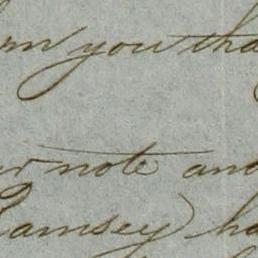 rn you tha
r note and
Ramsey ha